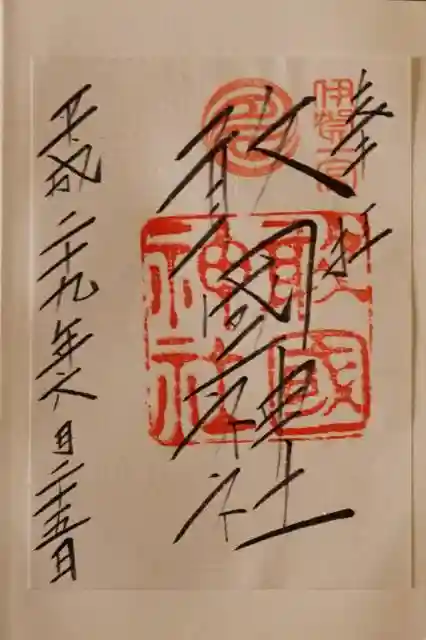 奉拝
伊賀一宮
敢國神社
敢國
神社
平成二十九年六月二十五日